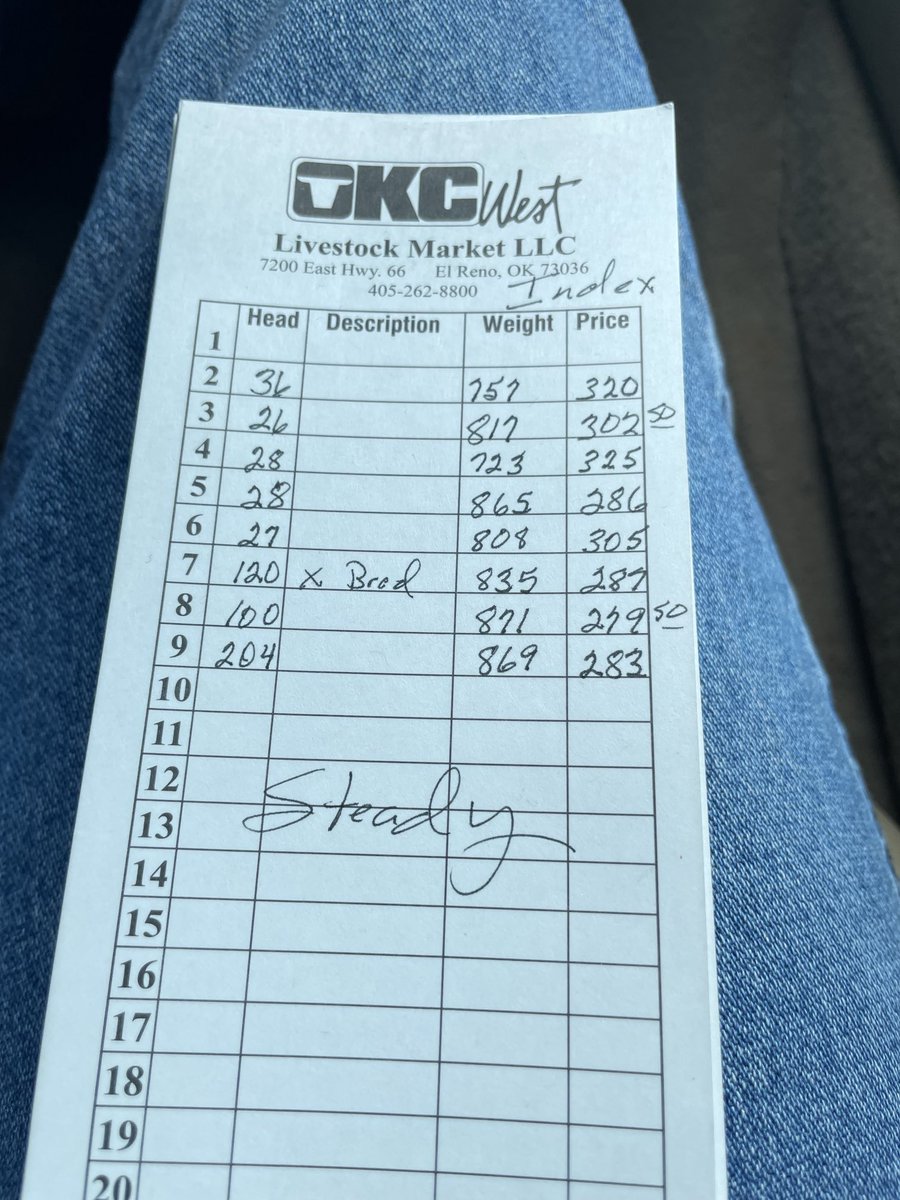 OKC West
Livestock Market LLC
7200 East Hwy. 66 El Reno, OK 73036
405-262-8800 Index
1 Head Description Weight Price
2 36 757 320
3 26 817 302 50
4 28 723 325
5 28 865 286
6 27 808 305
7 120 x Bred 835 287
8 100 871 279 50
9 204 869 283
10
11
12
Steady
13
14
15
16
17
18
19
20